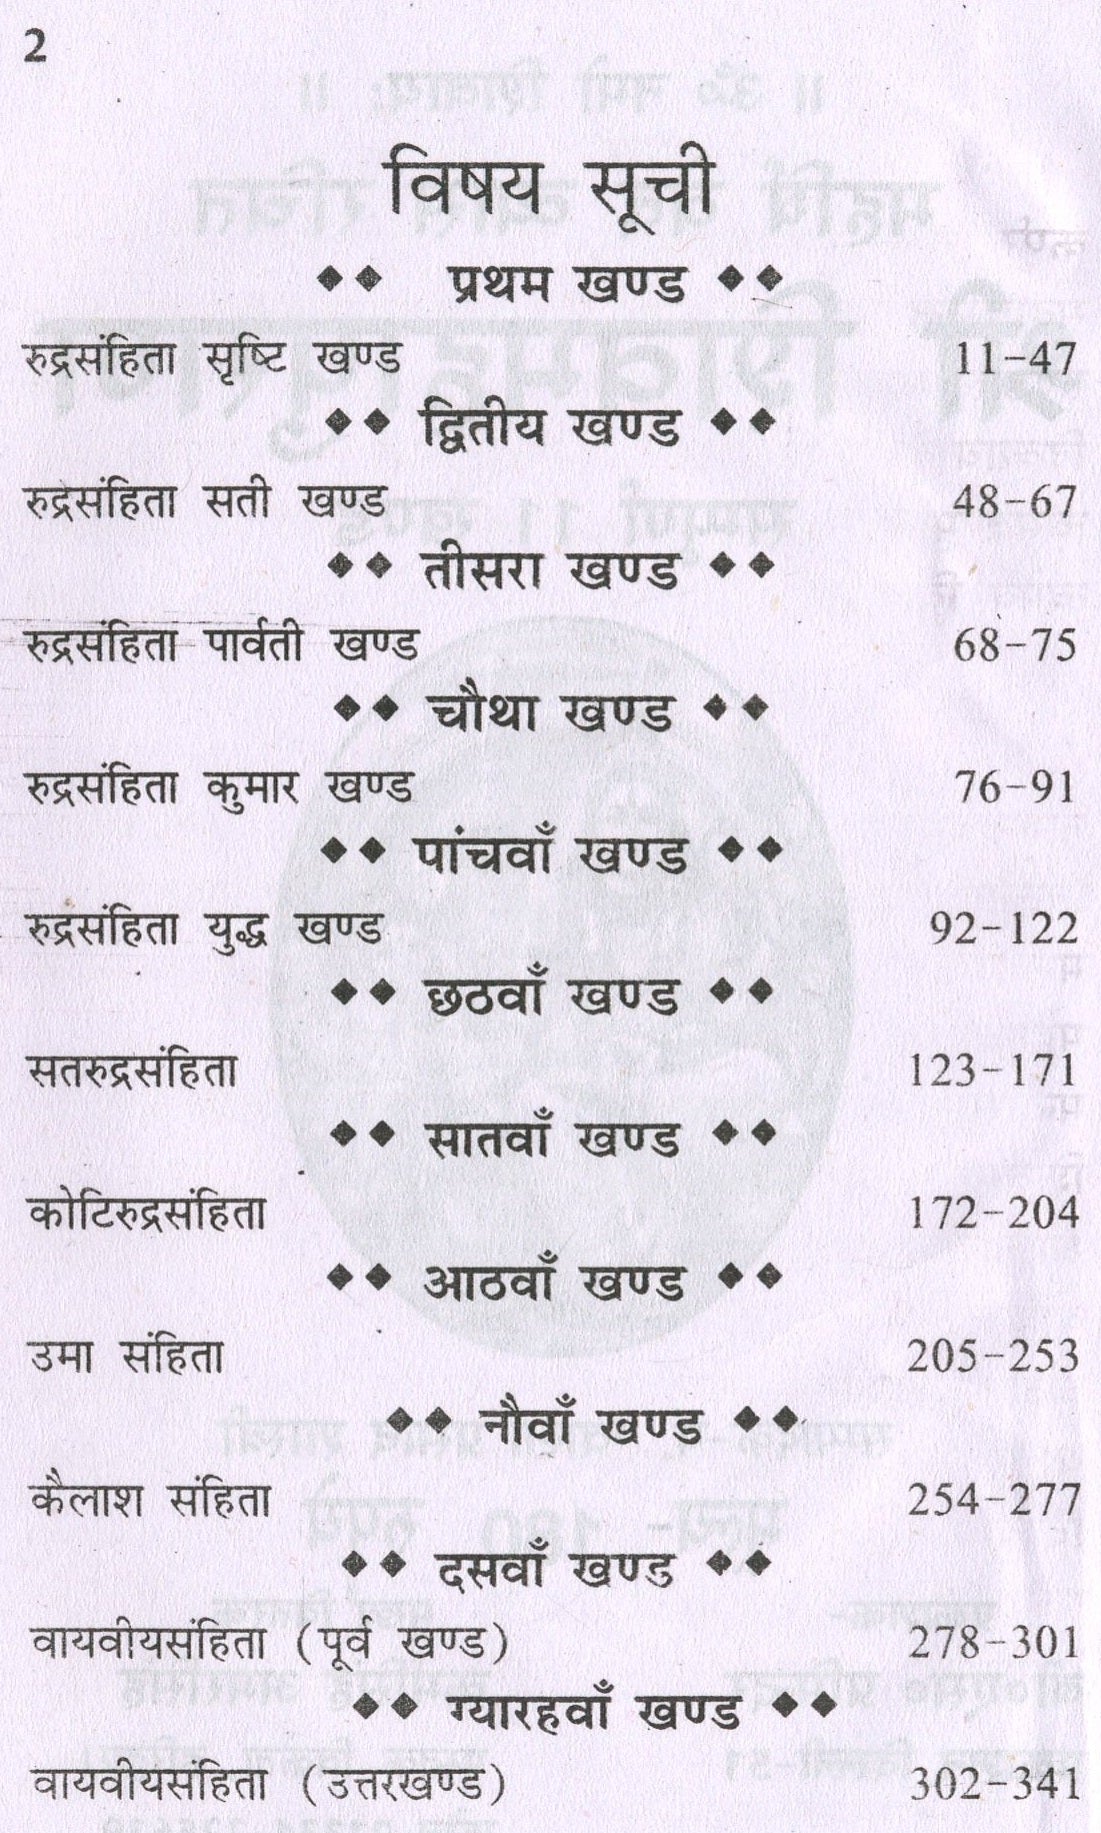 2
विषय सूची
◆◆ प्रथम खण्ड ◆◆
रुद्रसंहिता सृष्टि खण्ड 11-47
◆◆ द्वितीय खण्ड ◆◆
रुद्रसंहिता सती खण्ड 48-67
◆◆ तीसरा खण्ड ◆◆
रुद्रसंहिता पार्वती खण्ड 68-75
◆◆ चौथा खण्ड ◆◆
रुद्रसंहिता कुमार खण्ड 76-91
◆◆ पांचवाँ खण्ड ◆◆
रुद्रसंहिता युद्ध खण्ड 92-122
◆◆ छठवाँ खण्ड ◆◆
सतरुद्रसंहिता 123-171
◆◆ सातवाँ खण्ड ◆◆
कोटिरुद्रसंहिता 172-204
◆◆ आठवाँ खण्ड ◆◆
उमा संहिता 205-253
◆◆ नौवाँ खण्ड ◆◆
कैलाश संहिता 254-277
◆◆ दसवाँ खण्ड ◆◆
वायवीयसंहिता (पूर्व खण्ड) 278-301
◆◆ ग्यारहवाँ खण्ड ◆◆
वायवीयसंहिता (उत्तरखण्ड) 302-341